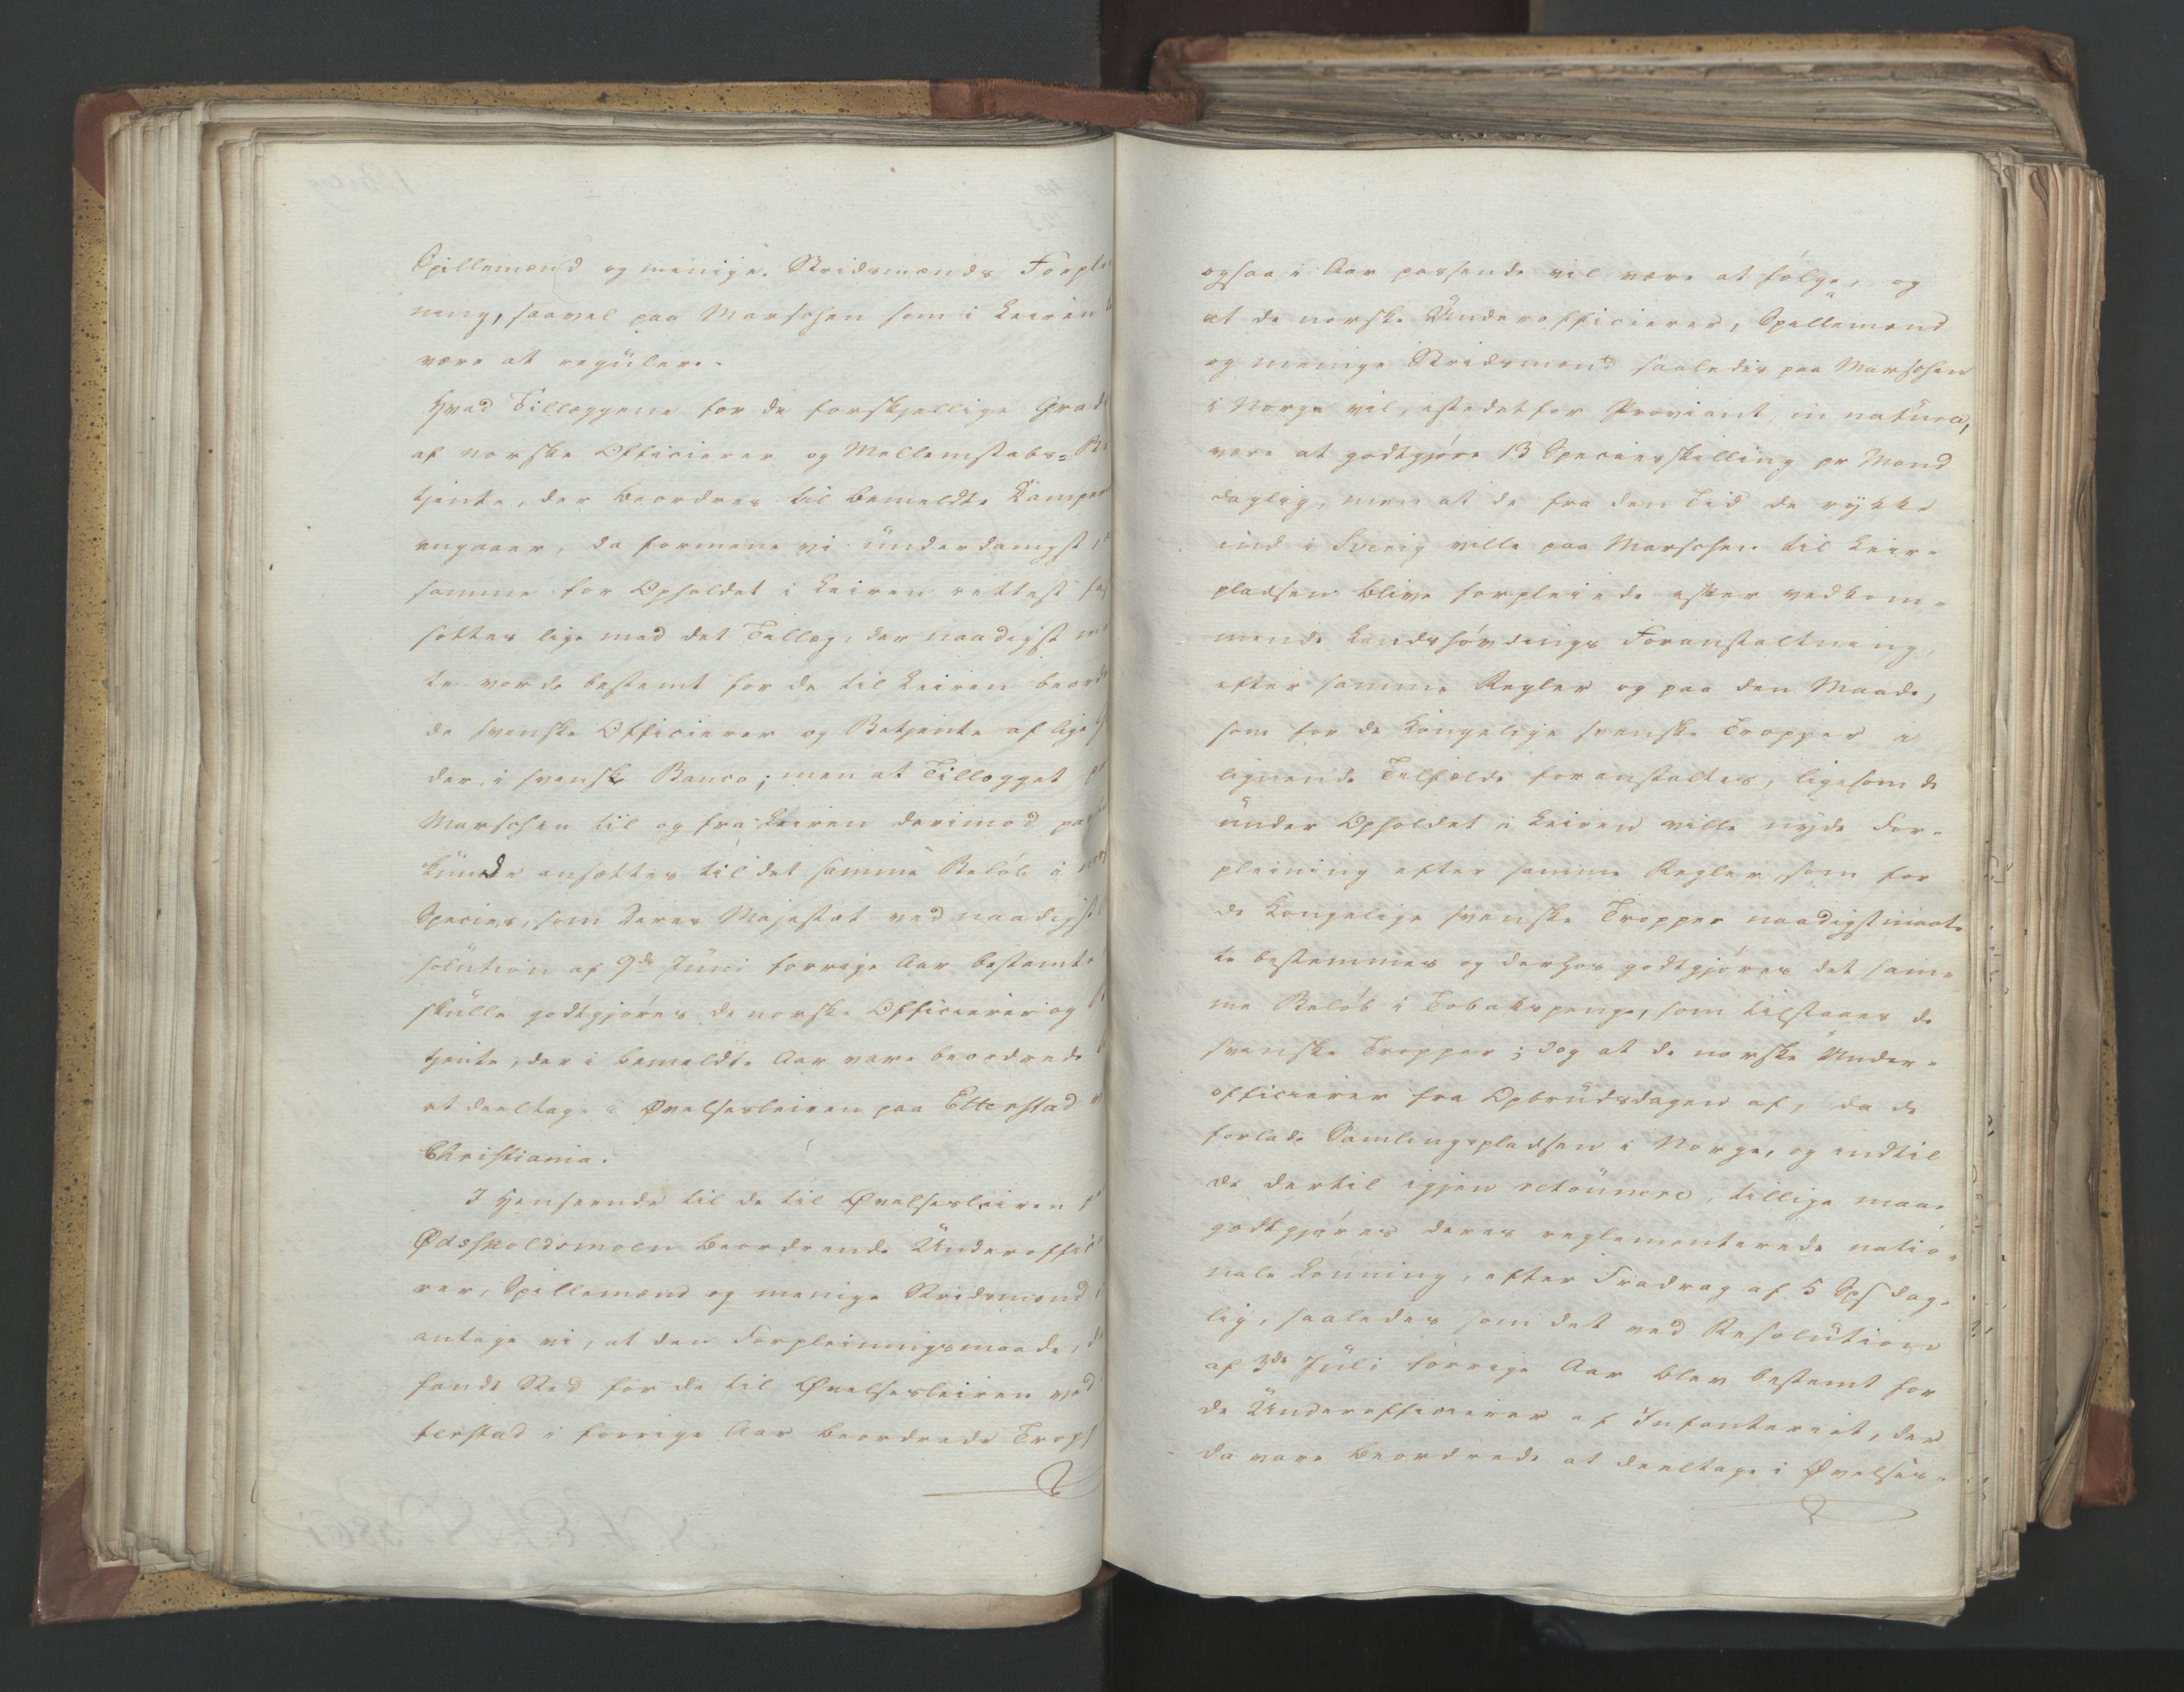 Spillemænd og menige Stridsmænds Forplei
ning, saavel paa Marschen som i Leiren
være at regulere.
Hvad Tillæggene for de forskjellige Grade
af norske Officierer og Mellemstabs-Be
tjente, der beordres til bemeldte Campem
angaaer, da formene vi underdanigst,
samme for Opholdet i Leiren rettest fast
sættes lige med det Tillæg, der naadigst maat
te vorde bestemt for de til Leiren beordre
de svenske Officierer og Betjente af lige
der, i svensk Banco; men at Tillægget paa
Marschen til og fra Leiren derimod passende
kunde ansættes til det samme Beløb i norsk
Species, som Deres Majestæt ved naadigst
solution af 9de Juni forrige Aar bestemte
skulle godtgjøres de norske Officierer og Be
tjente, der i bemeldte Aar vare beordrede
at deeltage i Øvelsesleiren paa Etterstad ved
Christiania.
I Henseende til de til Øvelsesleiren paa
Ødsskoldsmoen beordrende Underoffici
rer, Spillemænd og menige Stridsmænd
antage vi, at den Forpleiningsmaade, der
fandt Sted for de til Øvelsesleiren ved
terstad i forrige Aar beordrede Tropper
ogsaa i Aar passende vil være at følge, og
at de norske Underofficierer, Spillemænd
og menige Stridsmænd saaledes paa Marschen
i Norge vil, istedetfor Proviant in natura,
være at godtgjøre 13 Speciesskilling pr Mand
daglig, men at de fra den Tid de rykke
ind i Sverig ville paa Marschen til Leir-
pladsen blive forpleiede efter vedkom-
mende Landshøvdings Foranstaltning,
efter samme Regler og paa den Maade,
som for de Kongelige svenske Tropper i
lignende Tilfælde foranstaltes, ligesom de
under Opholdet i Leiren ville nyde For-
pleining efter samme Regler som for
de Kongelige svenske Tropper naadigst maat-
te bestemmes og derhos godtgjøres det sam-
me Beløb i Tobakspenge, som tilstaaes de
svenske Tropper; dog at de norske Under-
officierer fra Opbrudsdagen af, da de
forlade Samlingspladsen i Norge, og indtil
de dertil igjen retournere, tillige maae
godtgjøres deres reglementerede natio-
nale Lønning, efter Fradrag af 5 Sps dag-
lig, saaledes som det ved Resolution
af 3de Juli forrige Aar blev bestemt for
de Underofficierer af Infanteriet, der
da vare beordrede at deeltage i Øvelses-